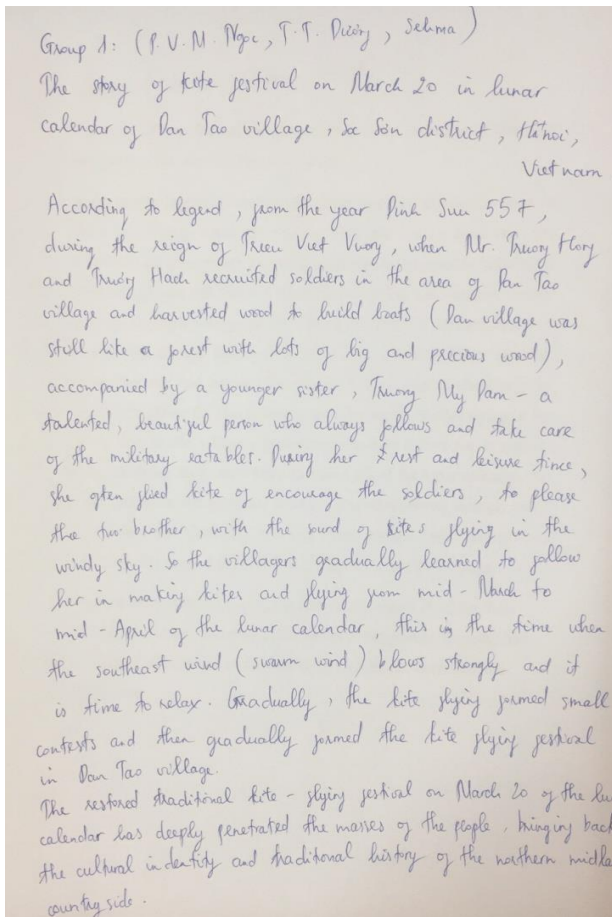 Group 1: (P.V.M. Ngọc, T.T. Dương, Selma)
The story of kite festival on March 20 in lunar
calendar of Dan Tao village, Soc Son district, Hanoi,
Vietnam
According to legend, from the year Dinh Suu 557,
during the reign of Trieu Viet Vuong, when Mr. Truong Hong
and Truong Hach recruited soldiers in the area of Dan Tao
village and harvested wood to build boats (Dan village was
still like a forest with lots of big and precious wood),
accompanied by a younger sister, Truong My Dam - a
talented, beautiful person who always follows and take care
of the military eatables. During her rest and leisure time,
she often flied kite of encourage the soldiers, to please
the two brother, with the sound of kites flying in the
windy sky. So the villagers gradually learned to follow
her in making kites and flying from mid - March to
mid - April of the lunar calendar, this is the time when
the southeast wind (swarm wind) blows strongly and it
is time to relax. Gradually, the kite flying formed small
contests and then gradually formed the kite flying festival
in Dan Tao village.
The restored traditional kite - flying festival on March 20 of the lu
calendar has deeply penetrated the masses of the people, bringing back
the cultural indentity and traditional history of the northern midla
country side.